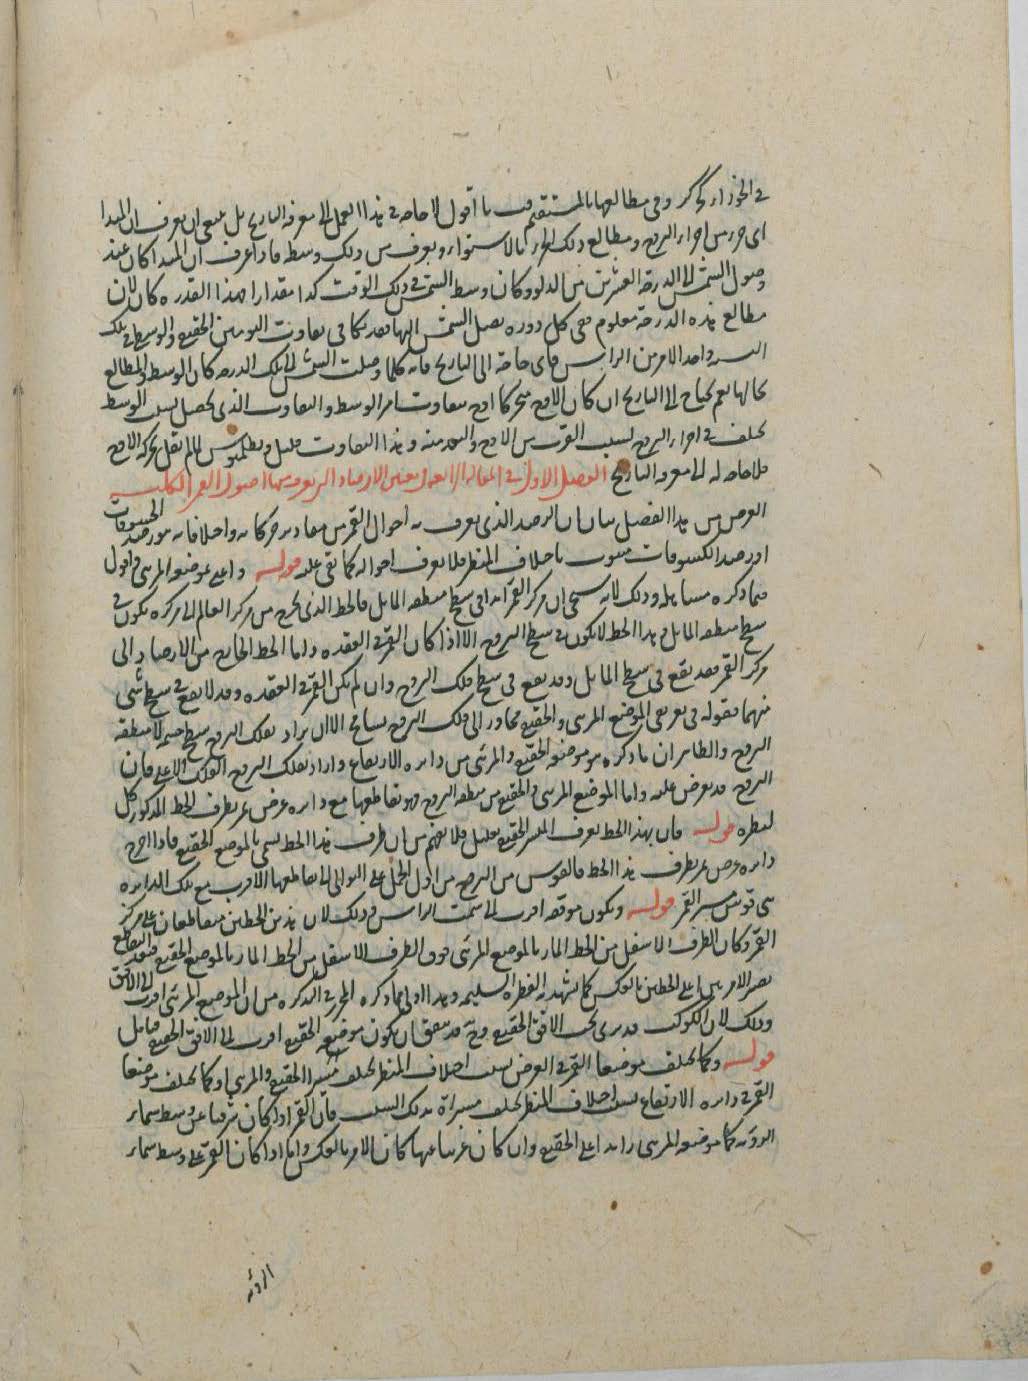 في الجوزاء لح كر وفي مطالعها بالمستقيم اقول لا حاجة في هذا العمل الى معرفة التاريخ بل ينبغي ان يعرف ان المبدا
اي جزء من اجزاء البروج ومطالع ذلك الجزء بالاستواء ويعرف من ذلك وسط فاذا عرف ان المبدا كان عند
وصول الشمس الى الدرجة العشرين من الدلو وكان وسط الشمس في ذلك الوقت كذا مقدارا بهذا القدر كان لان
مطالع هذه الدرجة معلوم ففي كل دورة يصل الشمس اليها فقد تكافى تفاوت اليومين الحقيقي والوسطي في تلك
السنة واحد الامرين الرابس فاي حاجة الى التاريخ فانه كلما وصلت الشمس الى تلك الدرجة كان الوسط والمطالع
بحالها نعم يحتاج الى التاريخ ان كان الاوج متحركا اذ يتفاوت امر الوسط والتفاوت الذي يحصل بسبب الوسط
يختلف في اجزاء البروج لسبب القرب من الاوج والبعد منه وهذا التفاوت قليل وبطلميوس لما لم يقل بحركة الاوج
فلا حاجة له الى معرفة التاريخ الفصل الاول في المقالة الرابعة في تعيين الارصاد التي يعرف بها اصول القمر الكلية
الغرض من هذا الفصل بيان ان الرصد الذي يعرف به احوال القمر من مقادير حركاته واختلافاته هو رصد الخسوفات
اذ رصد الكسوفات مشوب باختلاف المنظر فلا يعرف احواله كما ينبغي عليه قوله واعلم موضعه المرئي واقول
فيما ذكره مساهلة وذلك لانه سمى ان مركز القمر ابدا في سطح منطقة المايل فالخط الذي يخرج من مركز العالم الى مركزه يكون في
سطح منطقة المايل وهذا الخط لا يكون في سطح البروج الا اذا كان القمر في العقدة واما الخط الخارج من الابصار الى
مركز القمر فقد يقع في سطح المايل وقد يقع في سطح فلك البروج وان لم يكن القمر في العقدة وقد لا يقع في سطح شئ
منهما فقوله في تعريفي الموضع المرئي والحقيقي محاذ والى فلك البروج تسامح الا ان يراد بفلك البروج سطح جسمه لا منطقة
البروج والظاهر ان ما ذكره هو موضعه الحقيقي والمرئي من دايرة الارتفاع واراد بفلك البروج الفلك الاعلى فان
البروج قد يفرض عليه واما الموضع المرئي والحقيقي من منطقة البروج فهو تقاطعها مع دايرة عرض تمر بطرف الخط المذكور كل
لنظيره قوله فان بهذا الخط يعرف المسير الحقيقي تعليل فلا يفهم من ان طرف هذا الخط يسمى بالموضع الحقيقي فاذا اخرج
دايرة عرض تمر بطرف هذا الخط فالقوس من البروج من اول الحمل على التوالي الى تقاطعها الاقرب مع تلك الدايرة
سمى قوس مسير القمر قوله ويكون موقعه اقرب الى سمت الراس وذلك لان هذين الخطين متقاطعان على مركز
القمر وكان الطرف الاسفل من الخط المار بالموضع المرئي فوق الطرف الاسفل من الخط المار بالموضع الحقيقي فبعد التقاطع
يصير الامر بين اعلى الخطين بالعكس كما يشهد به الفطرة السليمة وهذا اولى مما ذكره المحرر في التذكرة من ان الموضع المرئي اقرب الى الافق
وذلك لان الكوكب قد يرى تحت الافق الحقيقي وح قد يتفق ان يكون موضعه الحقيقي اقرب الى الافق الحقيقي فتامل
قوله وكما يختلف موضعا القمر في العرض بسبب اختلاف المنظر يختلف مسيراه الحقيقي والمرئي او كما يختلف موضعا
القمر في دايرة الارتفاع بسبب اختلاف المنظر يختلف مسيراه بذلك السبب فان القمر اذا كان شرقيا عن وسط سماء
الرؤية كان موضعه المرئي زايدا على الحقيقي وان كان غربيا عنها كان الامر بالعكس واما اذا كان القمر على وسط سماء
الرؤية